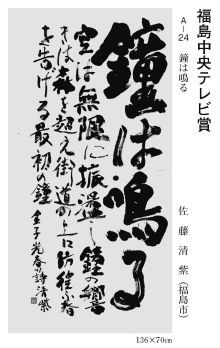 福島中央テレビ賞
A－24　鐘は鳴る
佐藤清紫（福島市）
鐘は鳴る
空は無限に振盪し鐘の響
きは森を超え街道の上に彷徨ふ春
を告げる最初の鐘　金子光春の詩　清紫
136×70㎝